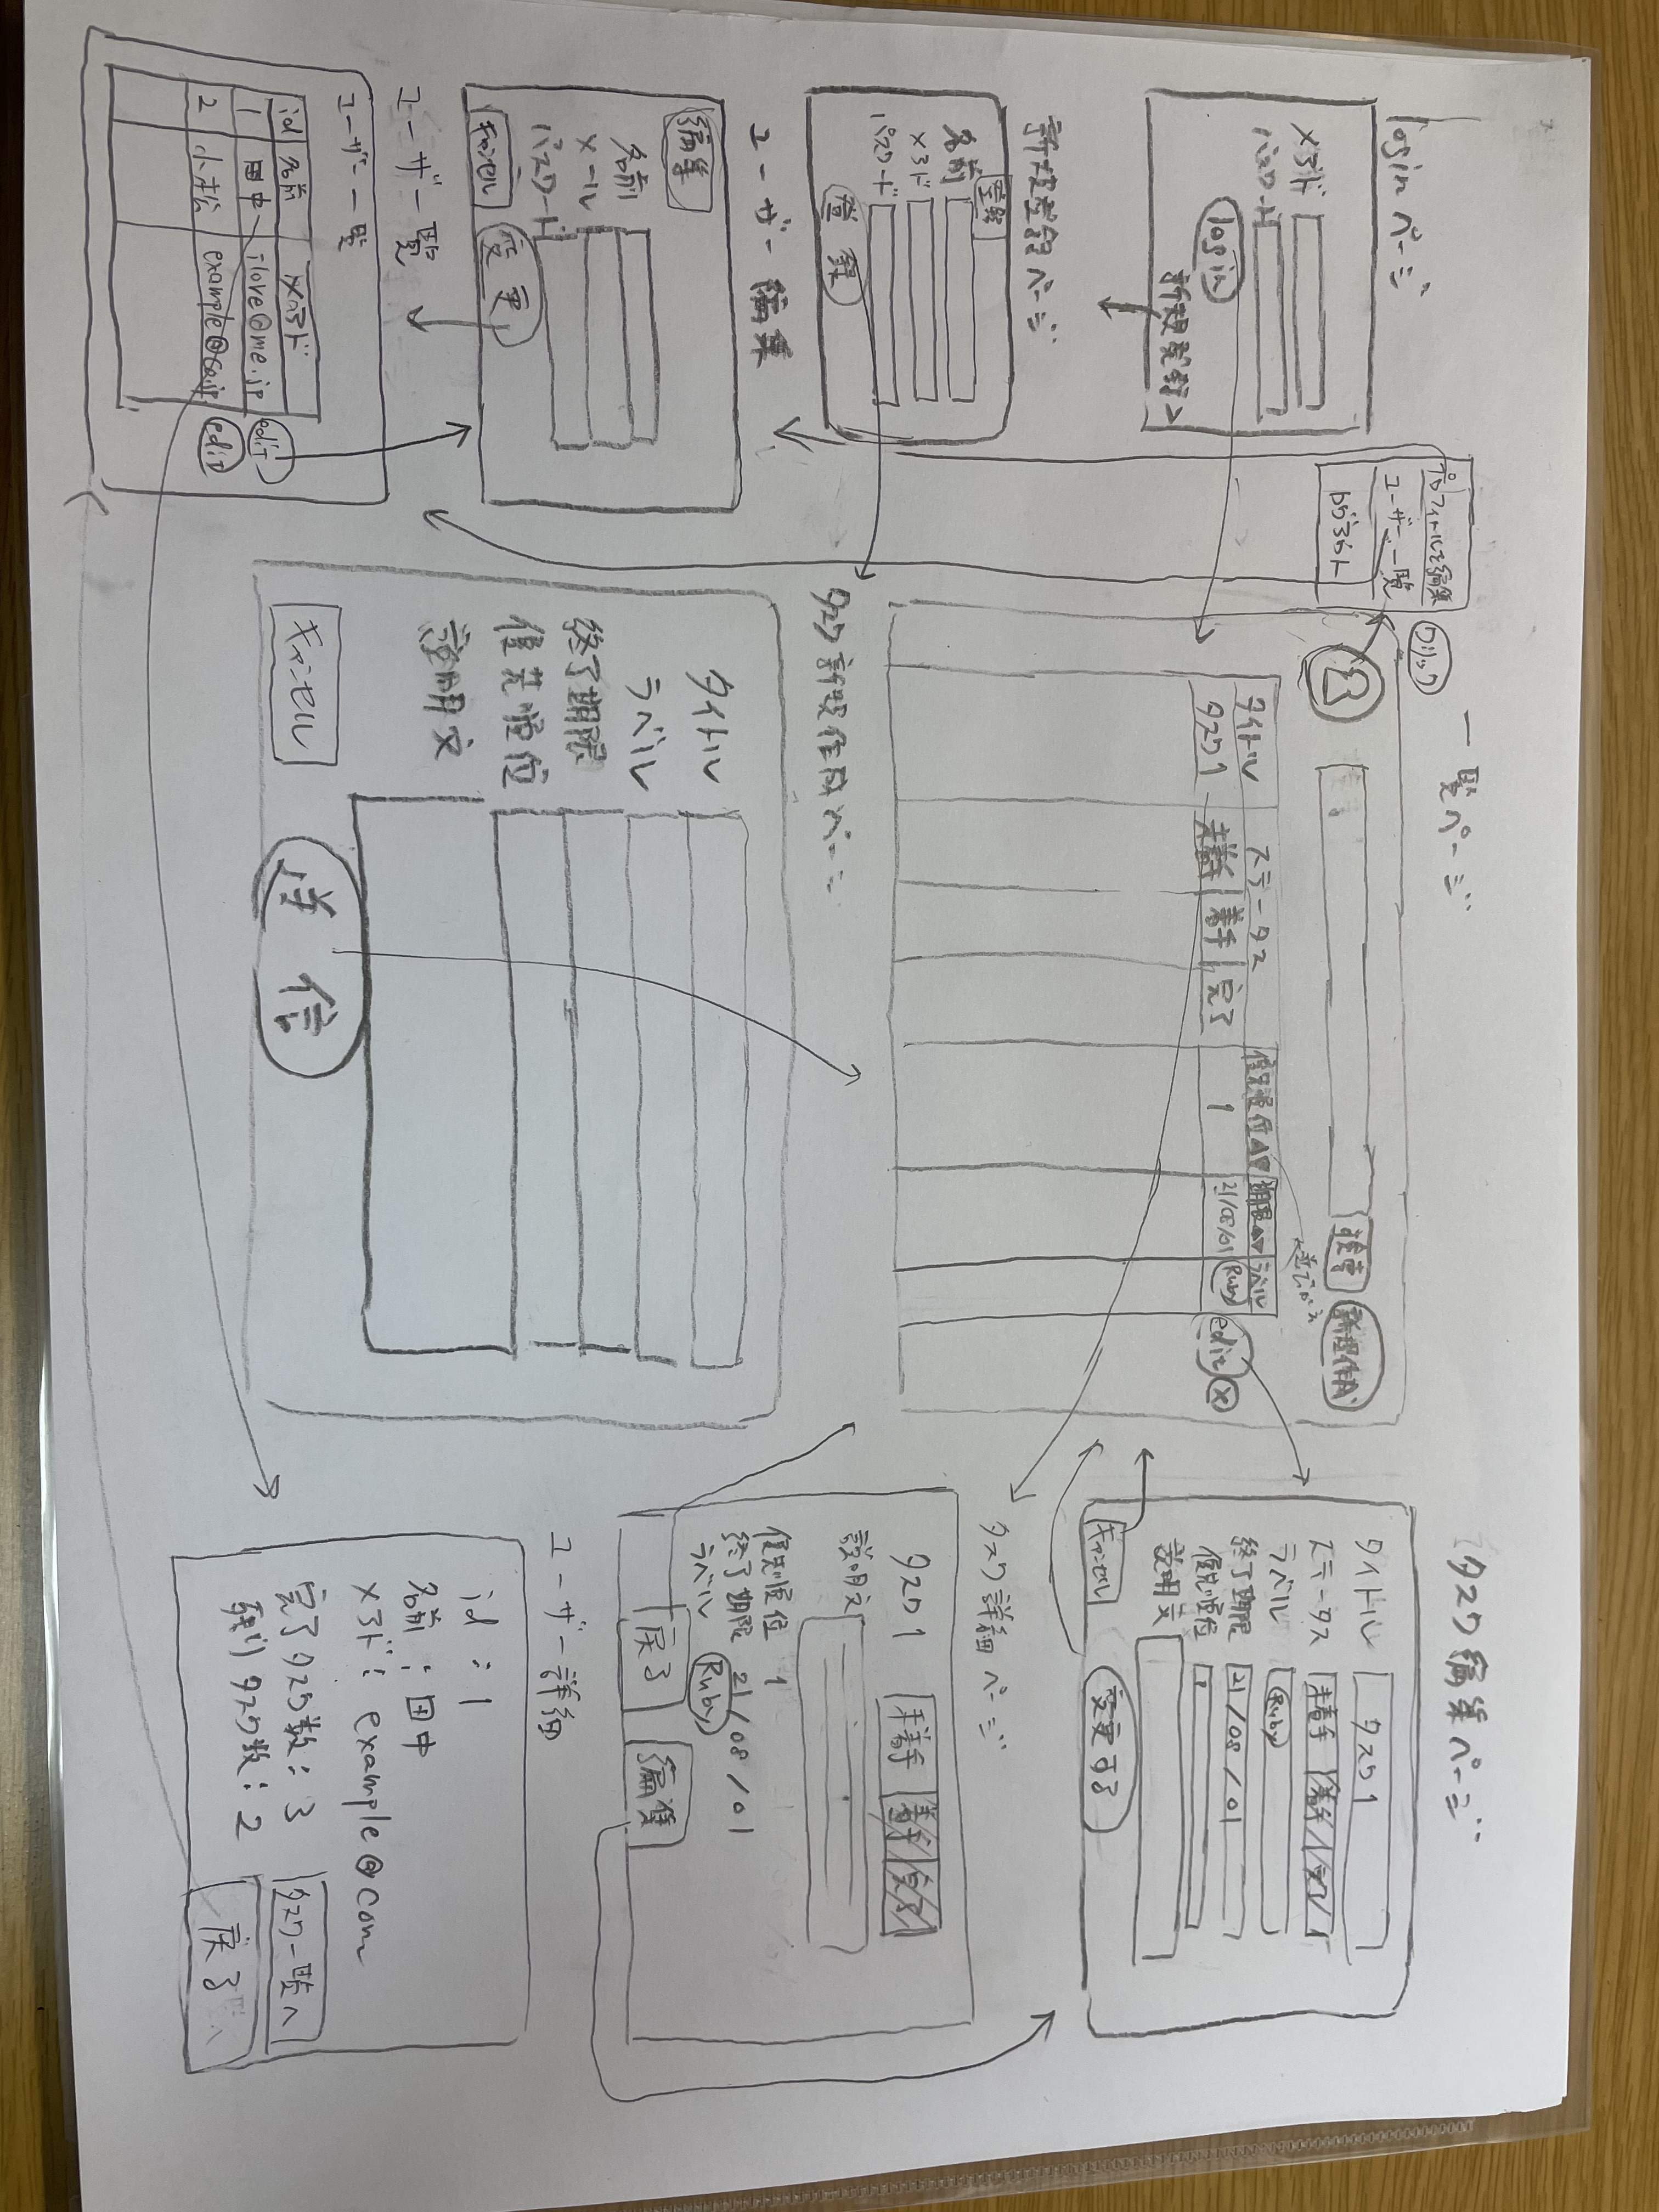 loginページ
メアド
パスワード
login
新規登録＞
新規登録ページ
登録
名前
メアド
パスワード
登録
ユーザー編集
編集
名前
メール
パスワード
キャンセル
変更
ユーザー一覧
ユーザー一覧
id 名前 メアド
1 田中 ilove@me.jp edit
2 小松 example@co.jp edit
プロフィールを編集
ユーザー一覧
ログアウト
クリック
一覧ページ
検索
新規作成
タイトル ステータス 優先順位▲▼ 期限▲▼ ラベル
タスク1 未着手 着手 完了 1 21/08/01 Ruby edit ×
タスク新規作成ページ
タイトル
ラベル
終了期限
優先順位
説明文
キャンセル
送信
タスク編集ページ
タイトル タスク1
ステータス 未着手 着手 完了
ラベル Ruby
終了期限 21/08/01
優先順位 1
説明文
キャンセル
変更する
タスク詳細ページ
タスク1 未着手 着手 完了
説明文
優先順位 1
終了期限 21/08/01
ラベル Ruby
戻る
編集
ユーザー詳細
id : 1
名前 : 田中
メアド : example@com
完了タスク数 : 3
残りタスク数 : 2
タスク一覧へ
戻る